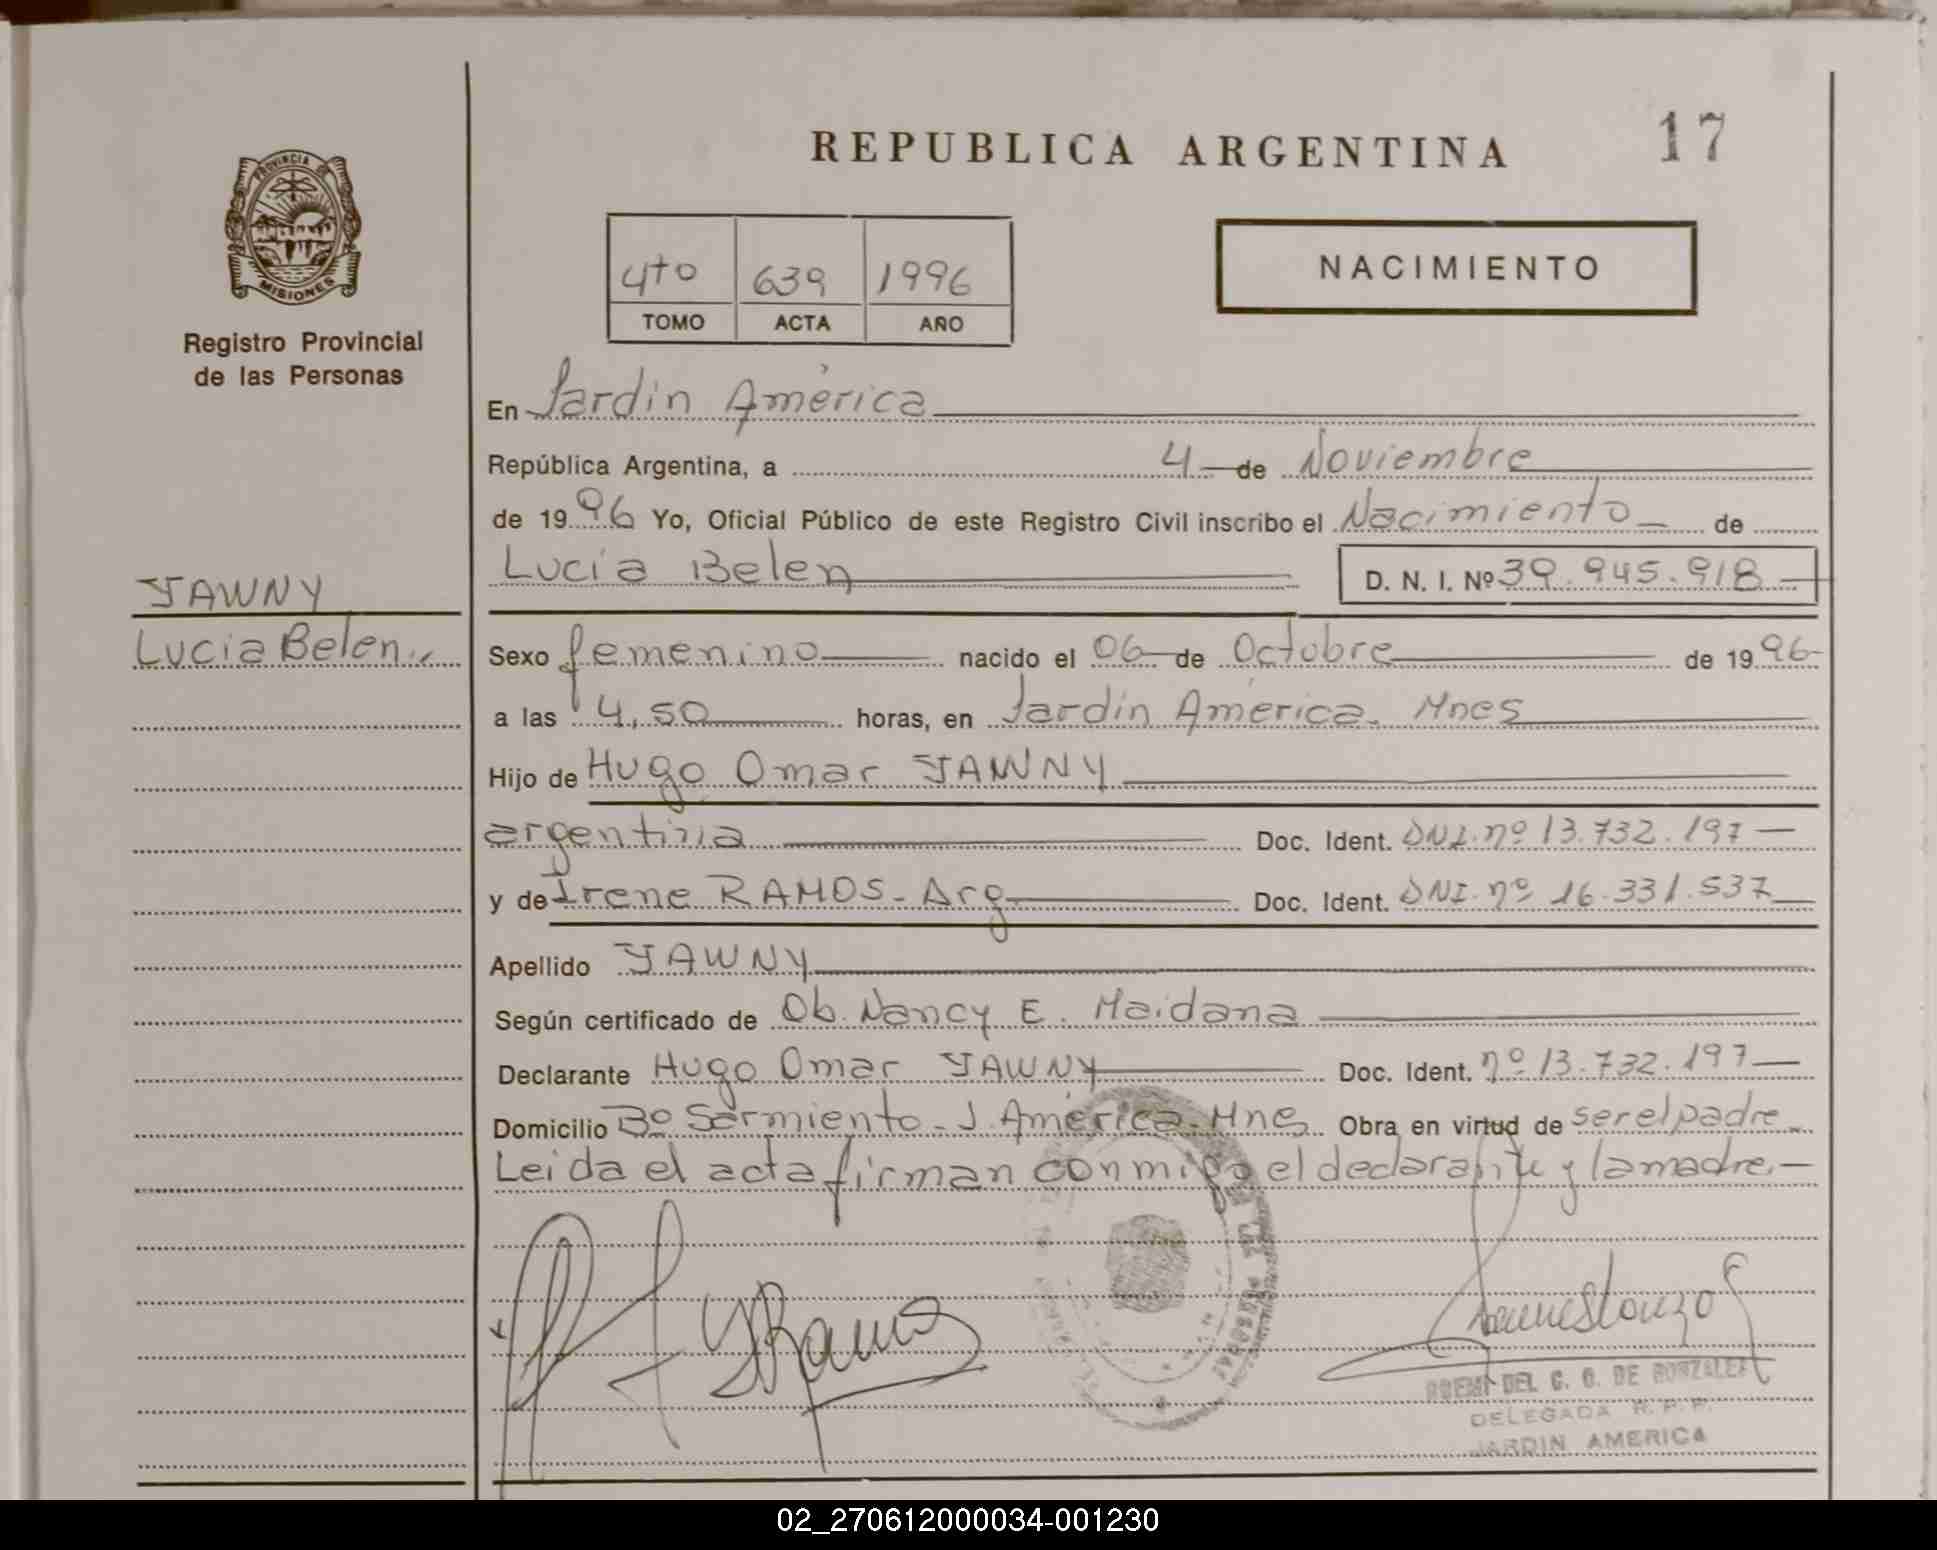 REPUBLICA ARGENTINA
17
PROVINCIA DE
MISIONES
Registro Provincial
de las Personas
4to 639 1996
TOMO ACTA AÑO
NACIMIENTO
En Jardín América
República Argentina, a 4 de Noviembre
de 1996 Yo, Oficial Público de este Registro Civil inscribo el Nacimiento de
Lucía Belen D. N. I. Nº 39.945.918
YAWNY
Lucia Belen
Sexo femenino nacido el 06 de Octubre de 1996
a las 4,50 horas, en Jardín América. Mnes
Hijo de Hugo Omar YAWNY
argentina Doc. Ident. DNI. nº 13.732.197
y de Irene RAMOS - Arg Doc. Ident. DNI. nº 16.331.537
Apellido YAWNY
Según certificado de Ob. Nancy E. Maidana
Declarante Hugo Omar YAWNY Doc. Ident. nº 13.732.197
Domicilio Bº Sarmiento - J. América. Mnes Obra en virtud de ser el padre
Leida el acta firman conmigo el declarante y la madre.-
DEL C. G. DE GONZALEZ
DELEGADA R. P. P.
JARDIN AMERICA
02_270612000034-001230